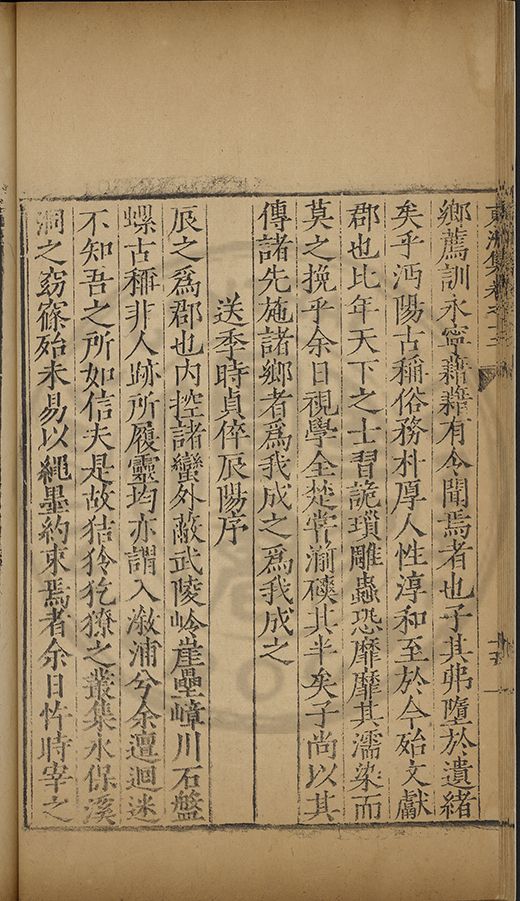 東洲集卷之十三
十五
鄉薦訓永寧藉藉有令聞焉者也子其弗墮於遺緒
矣乎沔陽古稱俗務朴厚人性淳和至於今殆文獻
郡也比年天下之士習詭瑣雕蟲恐靡靡其濡染而
莫之挽乎余日視學全楚嘗湔磢其半矣子尚以其
傳諸先施諸鄉者爲我成之爲我成之
送季時貞倅辰陽序
辰之爲郡也內控諸蠻外敵武陵岭崖壘嶂川石盤
螺古稱非人跡所履靈均亦謂入溆浦兮余邅迴迷
不知吾之所如信夫是故狤狑犵獠之叢集永保溪
洞之窈窱殆未易以繩墨約束焉者余日忤時宰之